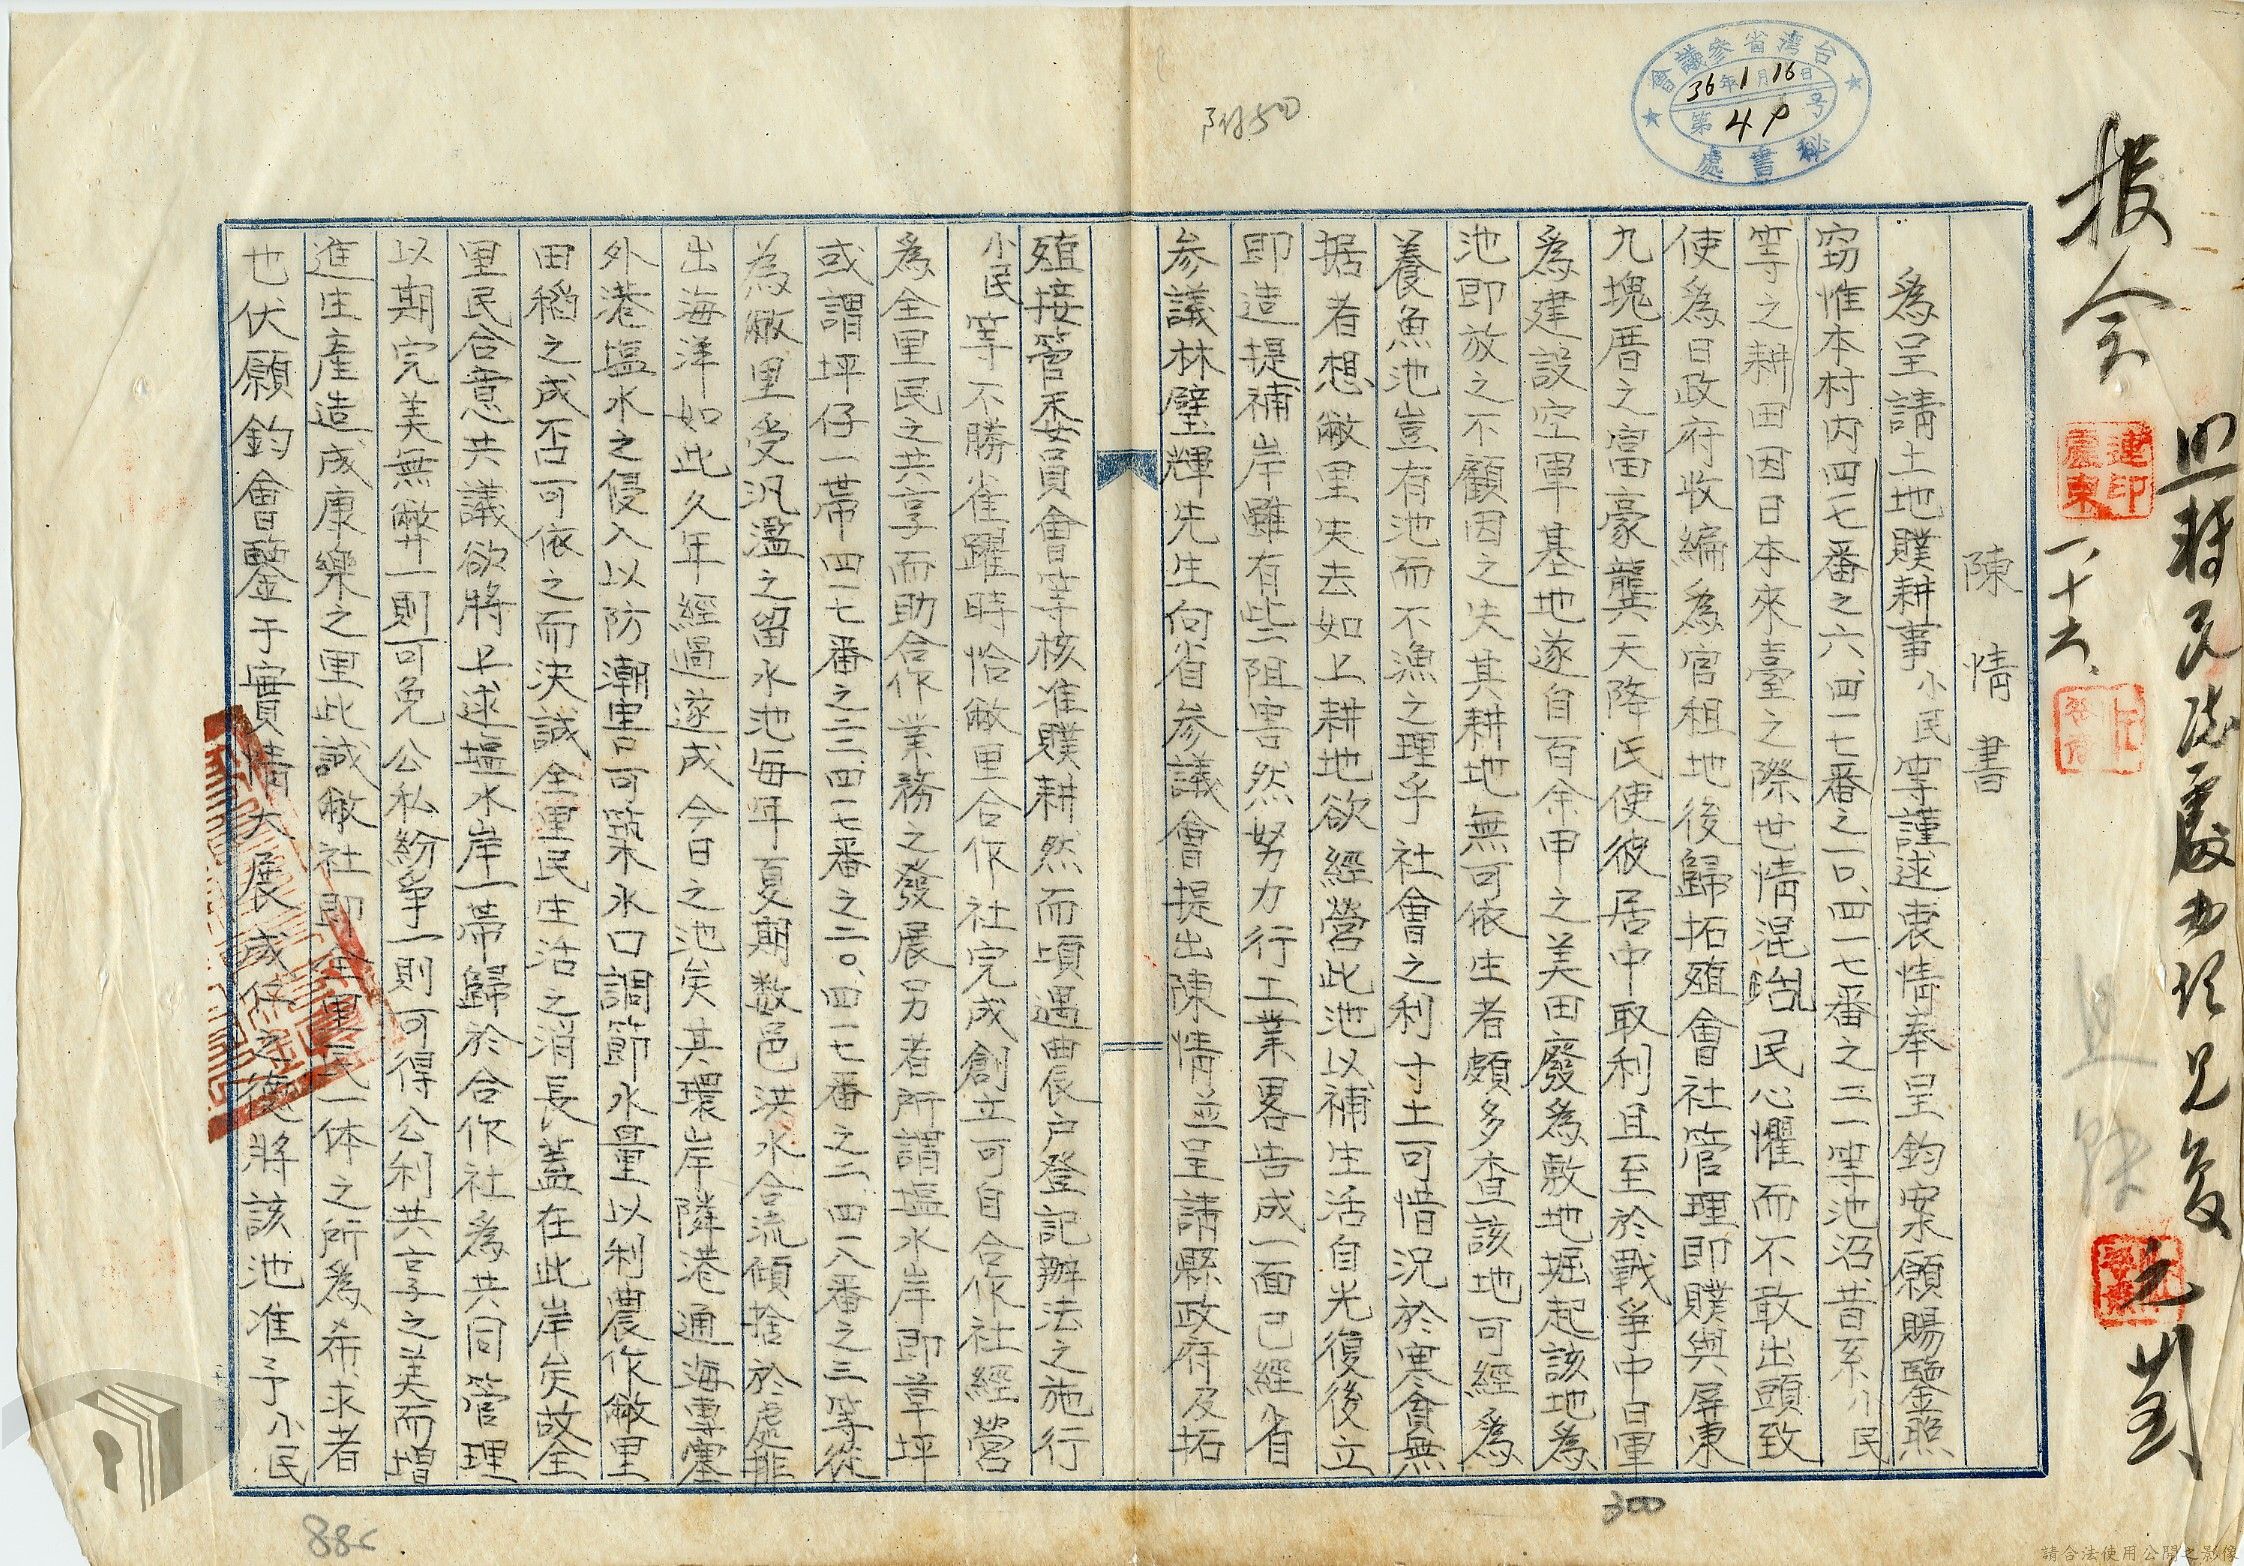 台灣省參議會
36年1月16日
第49号
秘書處
附50
报会
一、十六、
陳情書
為呈請土地贌耕事小民等謹逑衷情奉呈鈞案願賜鑒照
窃惟本村内四七番之六、四一七番之一〇、四一七番之三一等池沼、昔系小民
等之耕田因日本來臺之際世情混亂民心懼而不敢出頭致
使為日政府收編為官租地後歸拓殖會社管理即贌與屏東
九塊厝之富豪龔天降氏使彼居中取利且至於戰爭中日軍
為建設空軍基地遂自百余甲之美田廢為敷地堀起該地為
池即放之不顧因之失其耕地無可依生者頗多查該地可經為
養魚池豈有池而不漁之理乎社會之利寸土可惜況於寒貧無
据者想敝里失去如上耕地欲經營此池以補生活自光復後立
即造提補岸雖有些阻害然努力行工業畧告成一面已經省
参議林璧輝先生向省參議會提出陳情並呈請縣政府及拓
殖接管委員會等核准贌耕然而頃遇農户登記辦法之施行
小民等不勝雀躍時恰敝里合作社完成創立可自合作社經營
為全里民之共享而助合作業務之發展另者所謂塩水岸即草坪
或謂坪仔一帯四一七番之二二、四一七番之二〇、四一七番之二、四一八番之三等從
為敝里受汎濫之留水池每年夏期数邑洪水合流傾捨於處排
出海洋如此久年經過遂成今日之池矣其環岸隣港通海專塞
外港塩水之侵入以防潮害只可築水口調節水量以利農作敝里
田稻之成否可依之而決誠全里民生活之消長蓋在此岸矣故全
里民合意共議欲將上逑塩水岸一帯歸於合作社為共同管理
以期完美無弊一則可免公私紛爭一則可得公利共享之美而增
進生產造成康樂之里此誠敝社即全里民一体之所為希求者
也伏願鈞會鑒于實情大展成仔之德將該池准予小民
300
88
請合法使用公開之影像